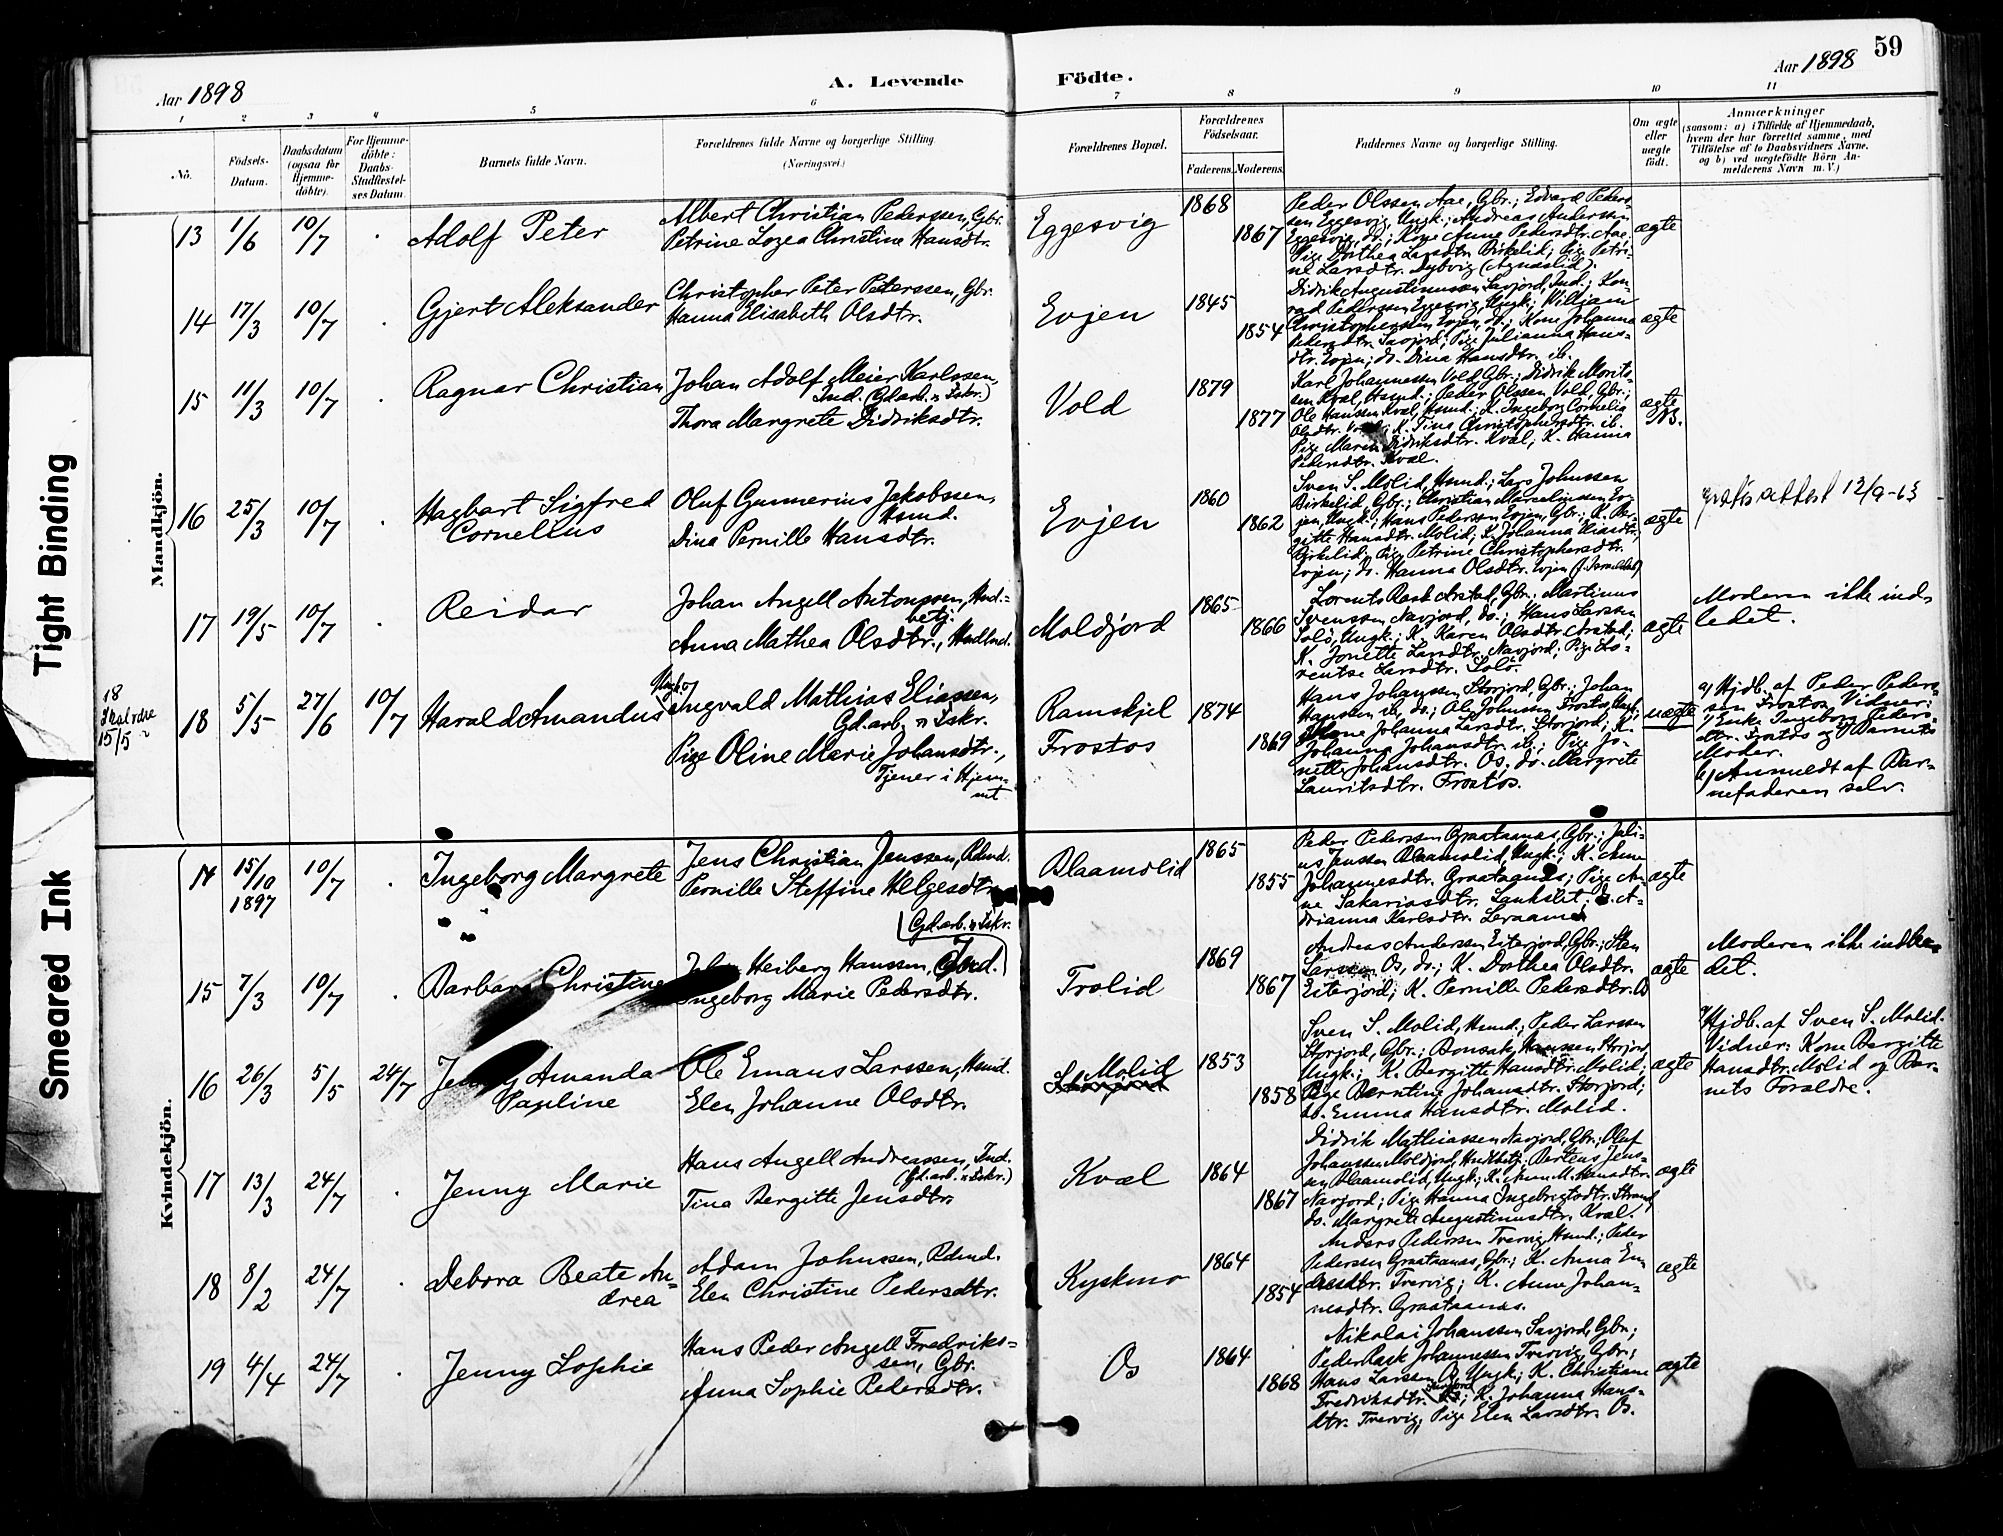 59
Aar 1898
A. Levende Födte.
Aar 1898
1 2 3 4 5 6 7 8 9 10 11
No.
Födsels-Datum.
Daabsdatum (ogsaa för Hjemme-döbte).
For Hjemme-döbte: Daabs-Stadfæstel-ses Datum.
Barnets fulde Navn.
Forældrenes fulde Navne og borgerlige Stilling (Næringsvei.)
Forældrenes Bopæl.
Forældrenes Födselsaar.
Faderens. Moderens.
Faddernes Navne og borgerlige Stilling.
Om ægte eller uægte födt.
Anmærkninger
(saasom: a) i Tilfælde af Hjemmedaab,
hvem der har forrettet samme, med
Tilföielse af to Daabsvidners Navne,
og b) ved uægtefödte Börn An-
melderens Navn m. V.)
Tight Binding
Smeared Ink
Mandkjön.
13 1/6 10/7 Adolf Peter
Albert Christian Pederssen, Gbr.
Petrine Lozea Christine Hansdtr.
Eggesvig 1868 1867
Peder Olssen Aae, Gbr.; Edvard Peders-
sen Eggesvig, Ungk.; Andreas Andersen
Eggesvig, do.; Kone Anne Pedersdtr. Aae,
Pige Dorthea Larsdtr. Birkelid; Pige Petri-
ne Larsdtr. Dybvig (Agnæslid).
ægte
14 17/3 10/7 Gjert Aleksander
Christopher Peter Peterssen, Gbr.
Hanna Elisabeth Olsdtr.
Evjen 1845 1854
Didrik Augustinussen Savjord, Ind.; Kon-
rad Pederssen Eggesvig, Ungk.; Villiam
Christophersen Evjen, do.; Kone Johanna
Pedersdtr. Savjord; Pige Julianna Hans-
dtr. Evjen; do. Dina Hansdtr. ib.
ægte
15 11/3 10/7 Ragnar Christian
Johan Adolf Meier Karlssen,
Ind. (Gd.arb. & Fiskr.)
Thora Margrete Didriksdtr.
Vold 1879 1877
Karl Johannessen Vold, Gbr.; Didrik Morits-
sen Kval, Hsmd.; Peder Olssen Vold, Gbr.;
Ole Hanssen Kval, Hsmd.; K. Ingeborg Cornelia
Olsdtr. Vold; K. Tina Christophersdtr. ib.
Pige Maren Didriksdtr. Kval; K. Hanna
Pedersdtr. Kval.
ægte NB.
16 25/3 10/7 Hagbart Sigfred
Cornelius
Oluf Gunnerius Jakobssen,
Hsmd.
Dina Pernille Hansdtr.
Evjen 1860 1862
Sven S. Molid, Hsmd.; Lars Johnssen
Birkelid, Gbr.; Christian Marcelinssen Ev-
jen, Ungk.; Hans Pedersen Evjen, Gbr.; K. Ber-
gitte Hansdtr. Molid; K. Johanna Eliasdtr.
Birkelid; Pige Petrine Christophersdtr.
Evjen; do. Hanna Olsdtr. Evjen
ægte
attest 12/9-63
17 19/5 10/7 Reidar
Johan Angell Antonssen, Hnd.-
betj.
Anna Mathea Olsdtr., Handlend.
Moldjord 1865 1866
Lorents Rask Arstad, Gbr.; Martinus
Svenssen Navjord, do.; Hans Larssen
Solö, Ungk.; K. Karen Olsdtr. Arstad;
K. Jonette Larsdtr. Navjord; Pige Lo-
rentse Larsdtr. Solö.
ægte
Moderen ikke ind-
ledet.
18
Skal være
15/5
18 5/5 27/6 10/7 Harald Amandus
Ungk. Ingvald Mathias Eliassen,
Gd.arb. & Fiskr.
Pige Oline Marie Johansdtr.,
Tjener i Hjem-
met
Ramskjel
Frostos
1874 1869
Hans Johanssen Storjord, Gbr.; Johan
Hanssen ib., do.; Ole Johnssen Frostos, Ungk.;
Kone Johanna Larsdtr. Storjord; K.
Johanna Johansdtr. ib.; Pige Jo-
nette Johansdtr. Os, do. Margrete
Lauritsdtr. Frostos.
uægte
a) Hjdb. af Peder Peders-
sen Frostos. Vidner:
Enke Ingeborg Peders-
dtr. Frostos og Barnets
Moder.
b) Anmeldt af Bar-
nefaderen selv.
Kvindekjön.
14 15/10 1897 10/7 Ingeborg Margrete
Jens Christian Jenssen, Rdmd.
Pernille Steffine Helgesdtr.
Blaamolid 1865 1855
Peder Pederssen Graataanæs, Gbr.; Juli-
us Jenssen Blaamolid, Ungk.; K. Anne
Johannesdtr. Graataanæs; Pige An-
ne Sakariasdtr. Lankslet; do. A-
drianna Karlsdtr. Leraamo
ægte
15 7/3 10/7 Barbara Christine
(Gd.arb. & Fiskr.
Heiberg Hanssen, Ind.
Ingeborg Marie Pedersdtr.
Trolid 1869 1867
Andreas Anderssen Eiterjord, Gbr.; Sten
Larssen Os, do.; K. Dorthea Olsdtr.
Eiterjord; K. Pernille Pedersdtr. Os
ægte
Moderen ikke indle-
det.
16 26/3 5/5 24/7 Jenny Amanda
Pauline
Ole Emaus Larssen, Hsmd.
Elen Johanne Olsdtr.
Molid
Storjord
1853 1858
Sven S. Molid, Hsmd.; Peder Larssen
Storjord, Gbr.; Bonsak Hanssen Storjord
Ungk.; K. Bergitte Hansdtr. Molid;
Pige Berntine Johansdtr. Storjord;
do. Emma Hansdtr. Molid.
ægte
a) Hjdb. af Sven S. Molid.
Vidner: Kone Bergitte
Hansdtr. Molid og Bar-
nets Forældre.
17 13/3 24/7 Jenny Marie
Hans Angell Andreassen, Ind.
(Gd.arb. & Fiskr.)
Tina Bergitte Jensdtr.
Kval 1864 1867
Didrik Mathiassen Navjord, Gbr.; Oluf
Johanssen Moldjord, Hndlbetj.; Berteus Jens-
sen Blaamolid, Ungk.; K. Anne M. Hansdtr.
Navjord; Pige Hanna Ingebrigtsdtr. Strand,
do. Margrete Augustinusdtr. Kval.
ægte
18 8/2 24/7 Debora Beate An-
drea
Adam Johnssen, Rdmd.
Elen Christine Pedersdtr.
Kyskmo 1864 1854
Anders Pederssen Tvervig, Hsmd.; Peder
Pederssen Graataanæs, Gbr.; K. Anna En-
dresdtr. Tvervig; K. Anne Johan-
nesdtr. Graataanæs.
ægte
19 4/4 24/7 Jenny Sophie
Hans Peder Angell Fredriks-
sen, Gbr.
Anna Sophie Pedersdtr.
Os 1864 1868
Nikolai Johanssen Savjord, Gbr.;
Peder Rask Johannessen Tvervig, Gbr.;
Hans Larssen Os, Ungk.; K. Christiane
Fredriksdtr. Savjord; K. Johanna Hans-
dtr. Tvervig; Pige Elen Larsdtr. Os.
ægte